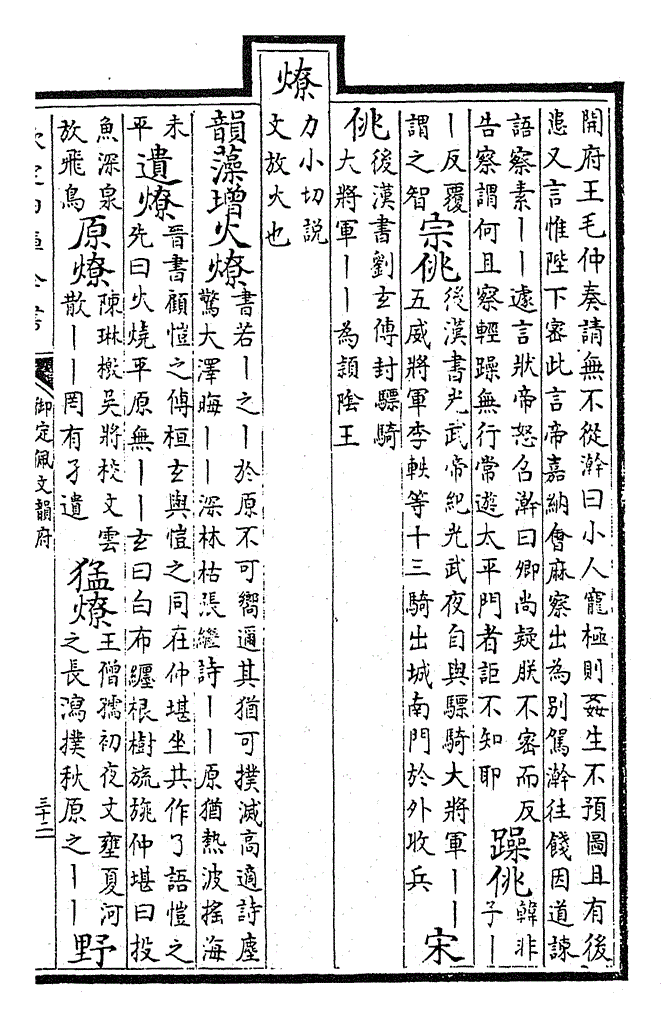 開府王毛仲奏請無不從澣曰小人寵極則姦生不預圖且有後
患又言惟陛下密此言帝嘉納會麻察出為别駕澣往餞因道諫
語察素丨丨遽言狀帝怒召澣曰卿尚疑朕不密而反
告察謂何且察輕躁無行常遊太平門者詎不知耶
躁佻
韓非
子丨
丨反覆
謂之智
宗佻
後漢書光武帝紀光武夜自與驃騎大將軍丨丨
五威將軍李軼等十三騎出城南門於外收兵
宋
佻
後漢書劉玄傳封驃騎
大將軍丨丨為潁陰王
燎
力小切説
文放火也
韻藻增
火燎
書若丨之丨於原不可嚮邇其猶可撲滅高適詩塵
驚大澤晦丨丨深林枯張繼詩丨丨原猶熱波摇海
未
平
遺燎
晉書顧愷之傳桓玄與愷之同在仲堪坐共作了語愷之
先曰火燒平原無丨丨玄曰白布纏根樹旒旐仲堪曰投
魚深泉
放飛鳥
原燎
陳琳檄吴將校文雲
散丨丨罔有孑遺
猛燎
王僧孺初夜文壅夏河
之長瀉撲秋原之丨丨
野
御定佩文韻府
三十二